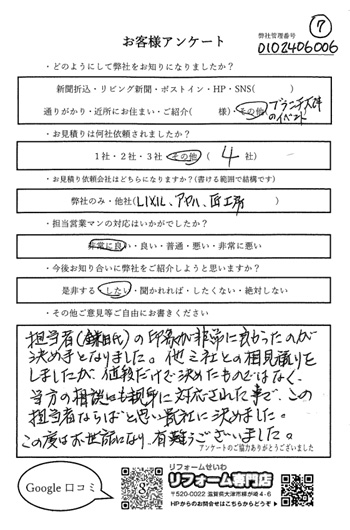 ⑦
お客様アンケート
弊社管理番号
0102406006
・どのようにして弊社をお知りになりましたか？
新聞折込・リビング新聞・ポストイン・HP・SNS(　　　)
通りがかり・近所にお住まい・ご紹介(　　様)・その他(ブランチ大津のイベント
・お見積りは何社依頼されましたか？
1社・2社・3社・その他 ( 4 社)
・お見積り依頼会社はどちらになりますか？(書ける範囲で結構です)
弊社のみ・他社(LIXIL、アヤハ、匠工房)
・担当営業マンの対応はいかがでしたか？
非常に良い・良い・普通・悪い・非常に悪い
・今後お知り合いに弊社をご紹介しようと思いますか？
是非する・したい・聞かれれば・したくない・絶対しない
・その他ご意見等ご自由にお書きください
担当者(鎌田氏)の印象が非常に良かったのが
決め手となりました。他三社との相見積りを
しましたが、値段だけで決めたものではなく、
当方の相談にも親身に対応された事で、この
担当者ならばと思い貴社に決めました。
この度はお世話になり、有難うございました。
アンケートのご協力ありがとうございました
Google 口コミ
リフォームせいわ
リフォーム専門店
〒520-0022 滋賀県大津市柳が崎4-6
HPからのお問合せはこちらからどうぞ